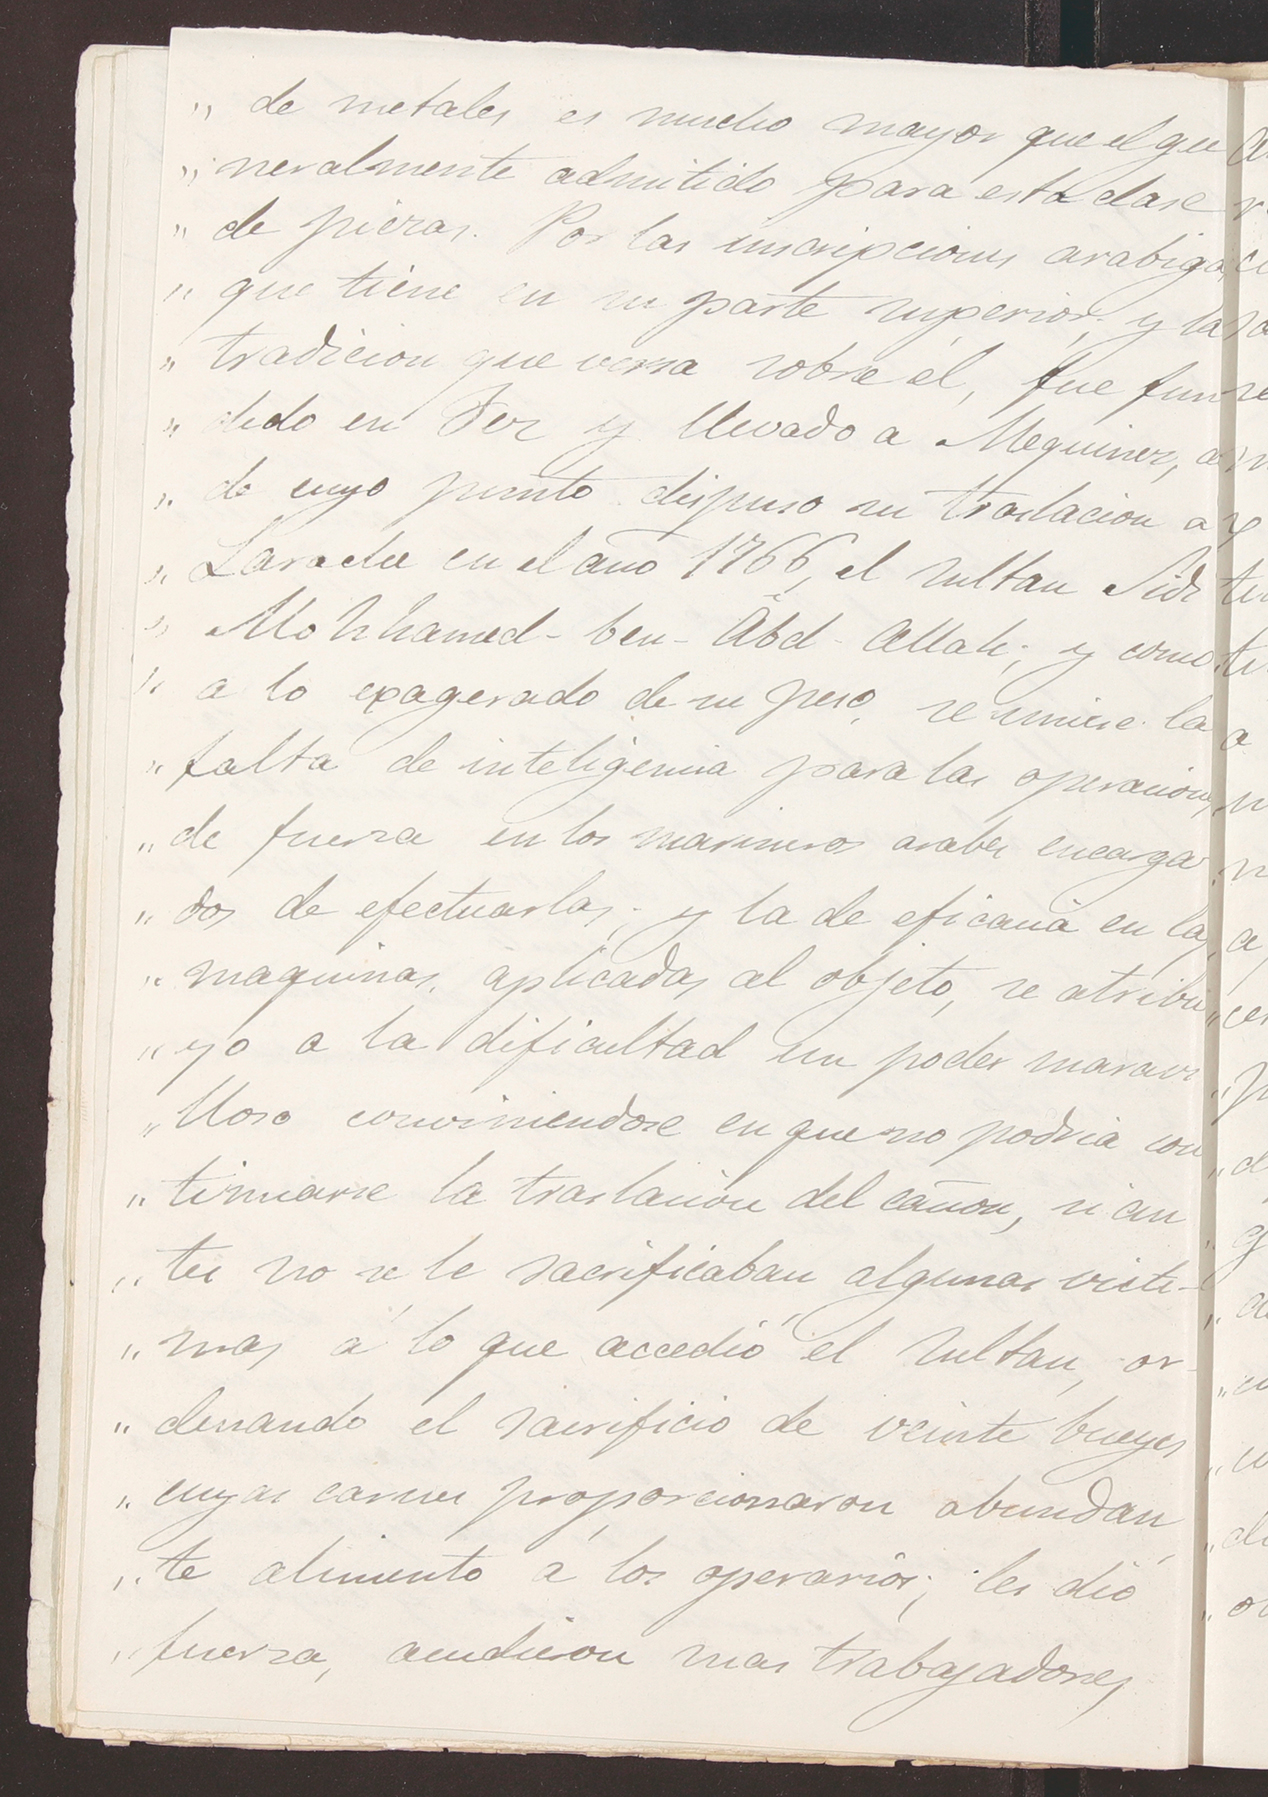 „ de metales es mucho mayor que el ge
„ neralmente admitido para esta clase
„ de piezas. Por las inscripciones arabigas
„ que tiene en su parte superior, y la
„ tradicion que versa sobre el, fue fun
„ dido en Fez y llevado a Mequinez,
„ de cuyo punto dispuso su traslacion a
„ Larache en el año 1766, el sultan Sidi
„ Mohhamed-ben-Abd-Allah; y como
„ a lo exagerado de su peso, se uniese la
„ falta de inteligencia para las operaciones
„ de fuerza en los marineros arabes encarga
„ dos de efectuarlas, y la de eficacia en las
„ maquinas, aplicadas al objeto, se atribu
„ yo a la dificultad un poder maravi
„ lloso conviniendose en que no podria con
„ tinuarse la traslacion del cañon, si an
„ tes no se le sacrificaban algunas victi-
„ mas á lo que accedió el sultan, or-
„ denando el sacrificio de veinte bueyes
„ cuyas carnes proporcionaron abundan
„ te alimento á los operarios; les dió
„ fuerza, acudieron mas trabajadores,